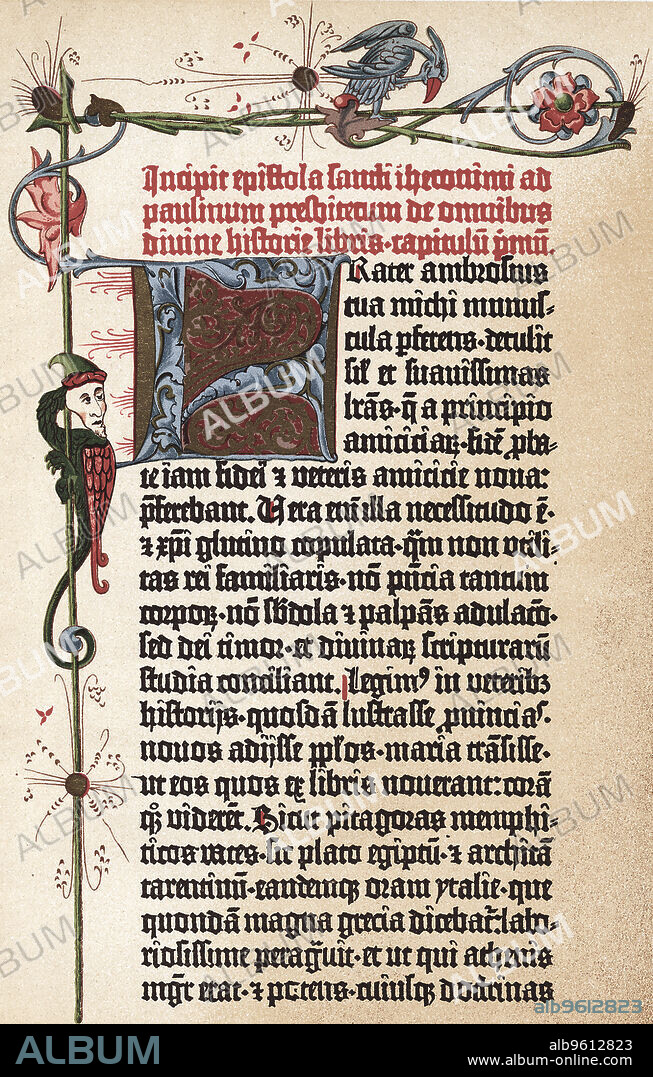 Incipit epistola sancti iheronimi ad
paulinum presbiterum de omnibus
divine historie libris·capitulū p̄mū.
FRater ambrosius
tua michi munus-
cula p̄ferens·detulit
sil̛ et suavissimas
lrās·q̄ a principio
amiciciaꝝ·fidē ꝓba-
te iam fidei ⁊ veteris amicicie nova:
p̄ferebant. Uera em̄ illa necessitudo ē·
⁊ xp̄i glutino copulata·qm̄ non utili-
tas rei familiaris·nō p̄ncia tantum
corpoꝝ·nō sb̄dola ⁊ palpās adulacō·
sed dei timor·et divinaꝝ scripturarū
studia conciliant. Legimꝰ in veteribꝫ
historijs·quosdā lustrasse ꝓvinciaˢ.
novos adijsse pp̄los·maria trāsisse·
ut eos quos ex libris noverant: corā
qꝫ viderēt. Sicut pitagoras memphi-
ticos vates·sic plato egiptū·⁊ architā
tarentinū·eandemqꝫ oram ytalie·que
quondā magna grecia dicebat̄: labo-
riosissime peragᷓvit·et ut qui athenis
mgr̄ erat·⁊ potens·cuiusqꝫ doctrinas
ALBUM
alb9612823
ALBUM
alb9612823
www.album-online.com